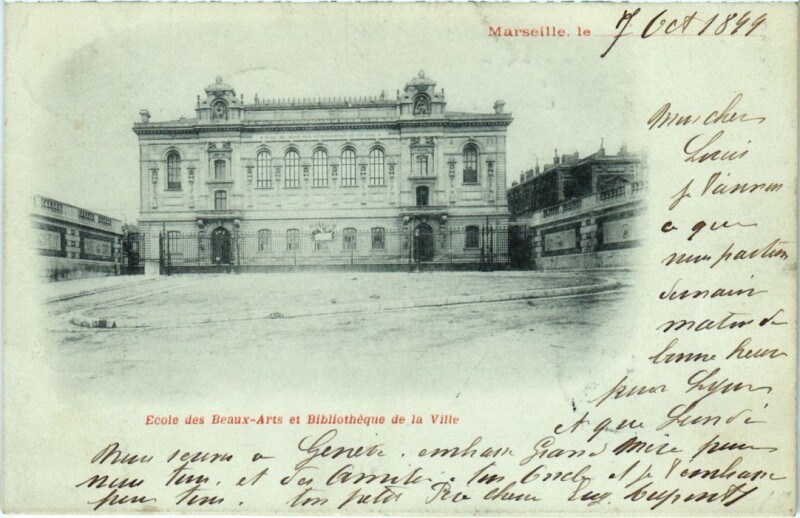 Marseille, le 7 Oct 1899
Mon cher
Louis
je t'annonce
ce que
nous partons
demain
matin de
bonne heure
pour Lyon
et que Lundi
Ecole des Beaux-Arts et Bibliothèque de la Ville
Nous serons a Genève. embrasse Grand Mère pour
nous tous. et des Amitiés a ton Oncle et je t'embrasse
pour tous. ton petit Père Eug.